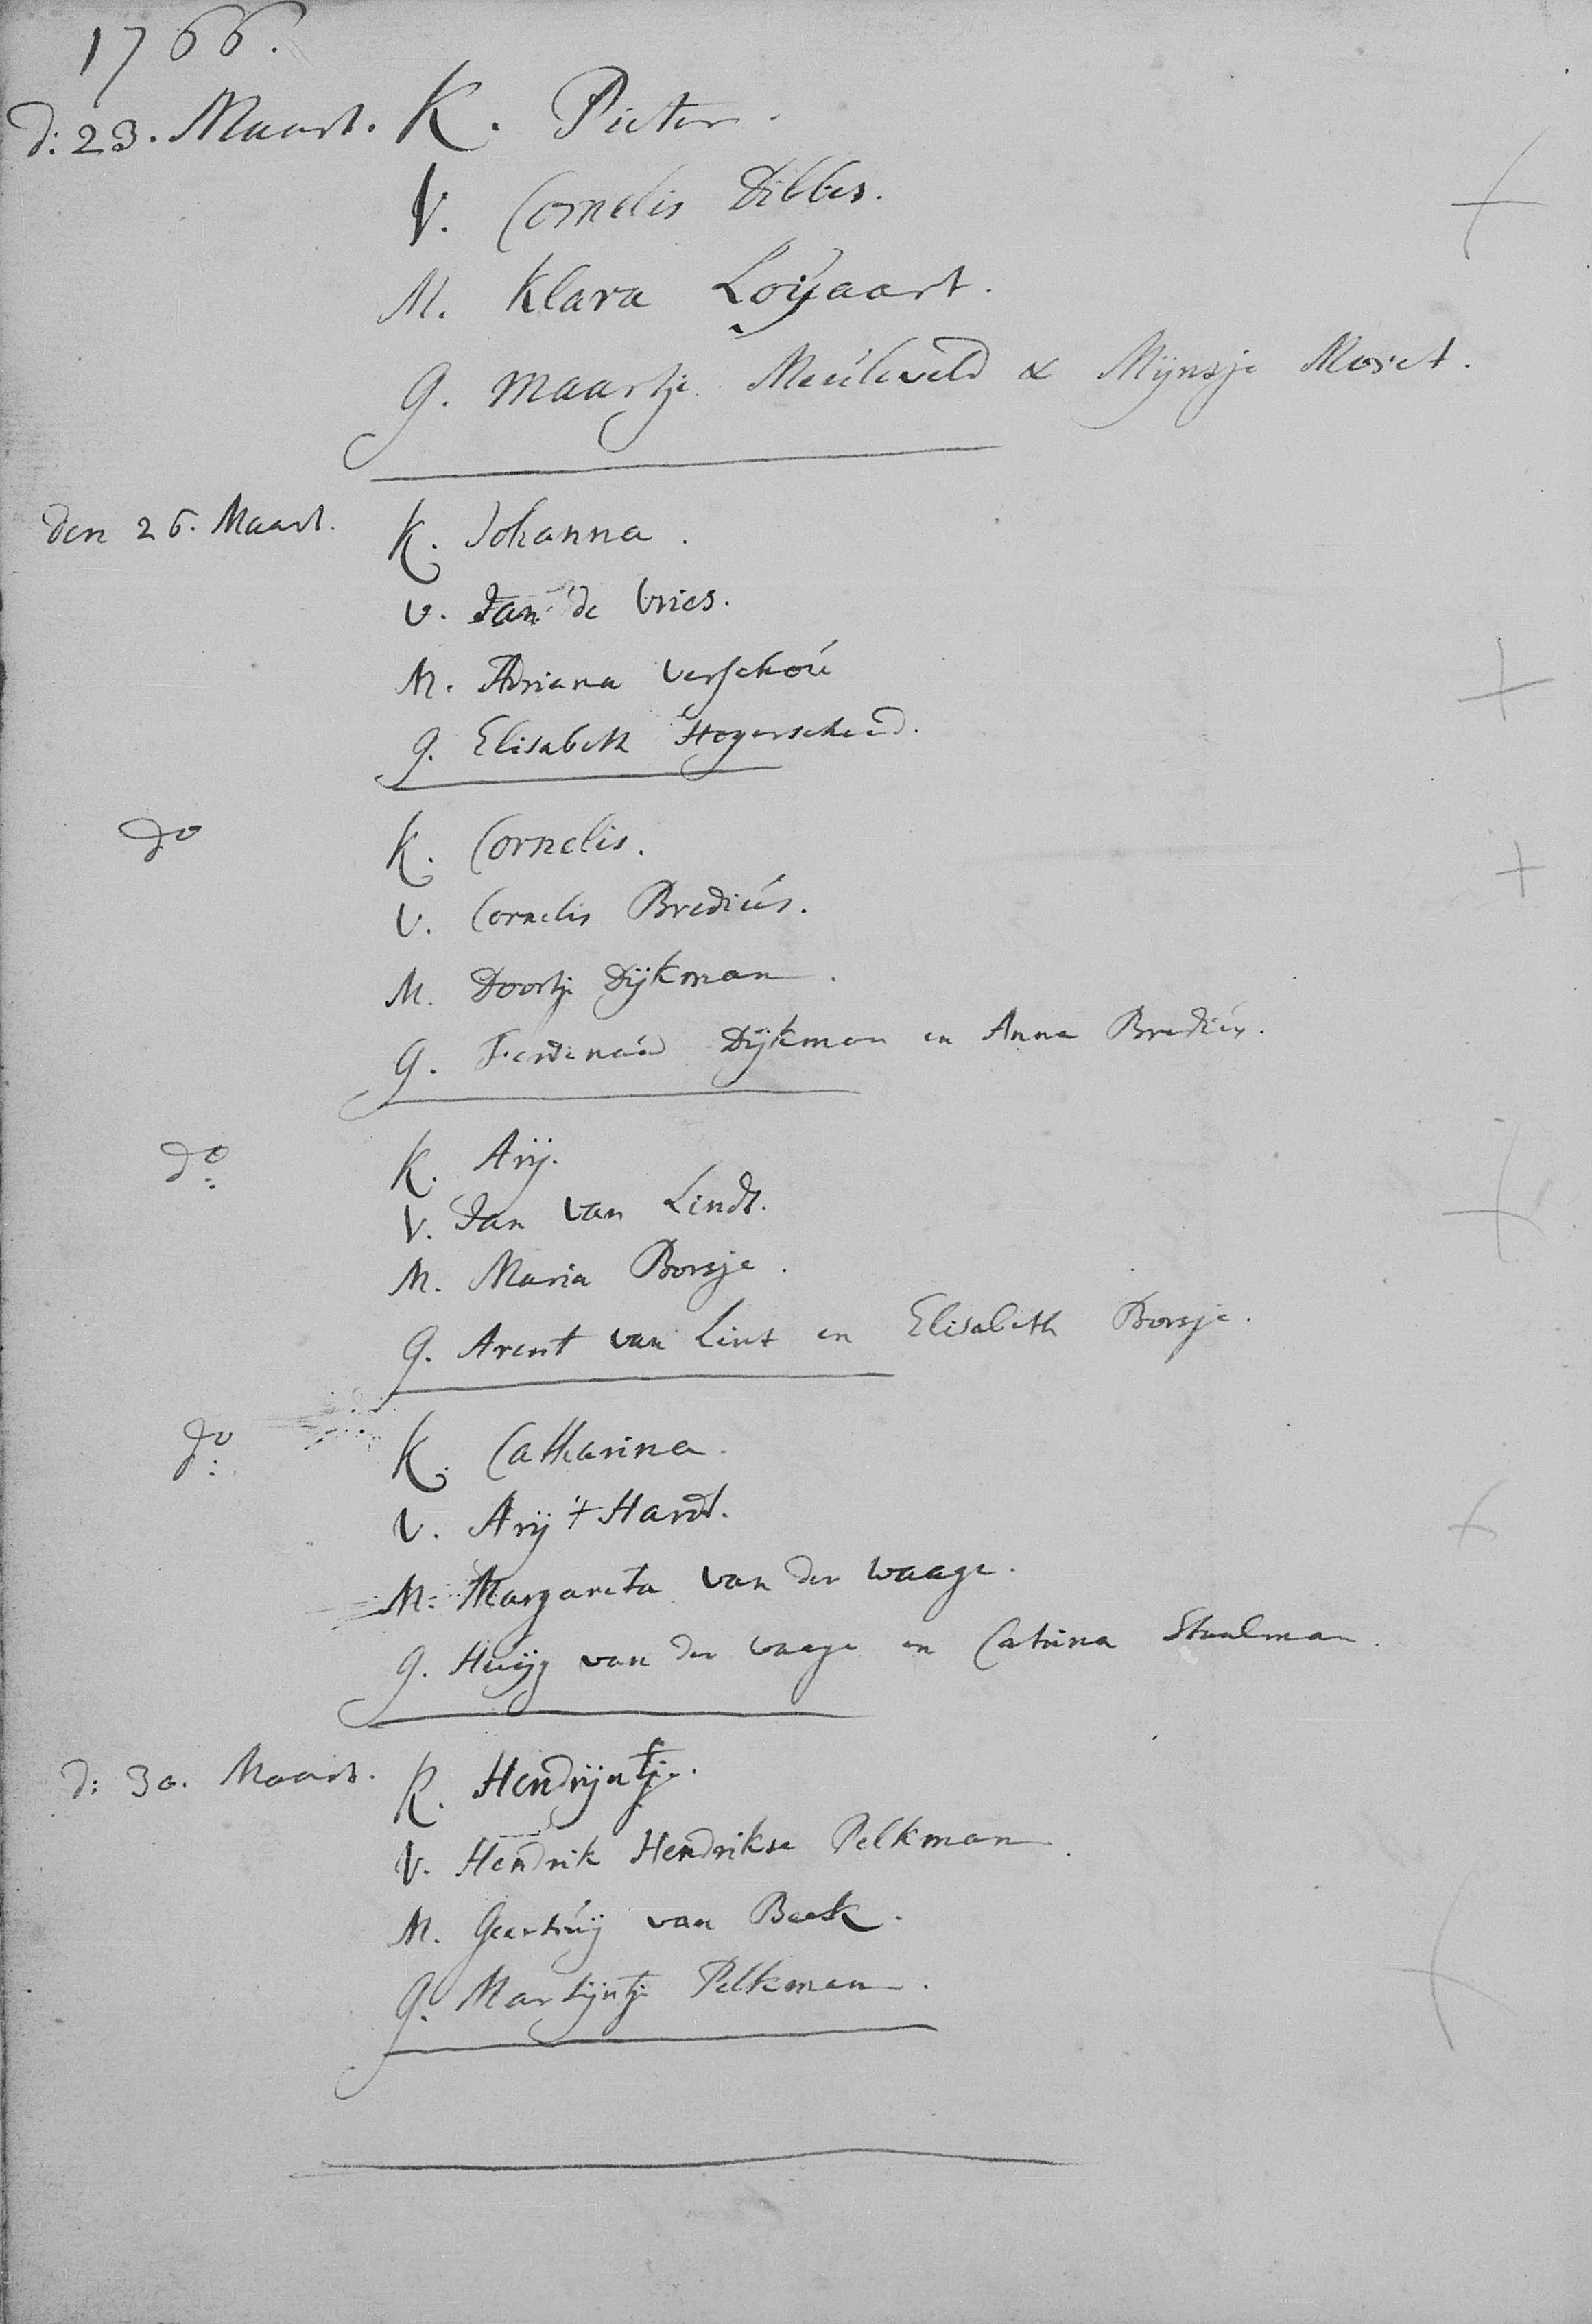 1766.
d: 23. Maart. K. Pieter.
V. Cornelis Dibbes.
M. Klara Loÿaart.
G. Maartje Meuleveld & Mÿnsje Moret.
den 26. Maart. K. Johanna.
V. Jan de Vries.
M. Adriana Verschou
G. Elisabeth Hogerscheid.
do K. Cornelis.
V. Cornelis Bredius.
M. Doortje Dÿkman.
G. Ferdenand Dÿkman en Anna Bredius.
do: K. Arÿ.
V. Jan van Lindt.
M. Maria Borsje.
G. Arent van Lint en Elisabeth Borsje.
do: K. Catharina.
V. Arÿ 't Hardt.
M: Margareta van der Waage.
G. Huÿg van der Waage en Catrina Staalman.
d: 30. Maart. K. Hendrÿntje.
V. Hendrik Hendrikse Pelkman.
M. Geertruÿ van Beek.
G. Martÿntje Pelkman.